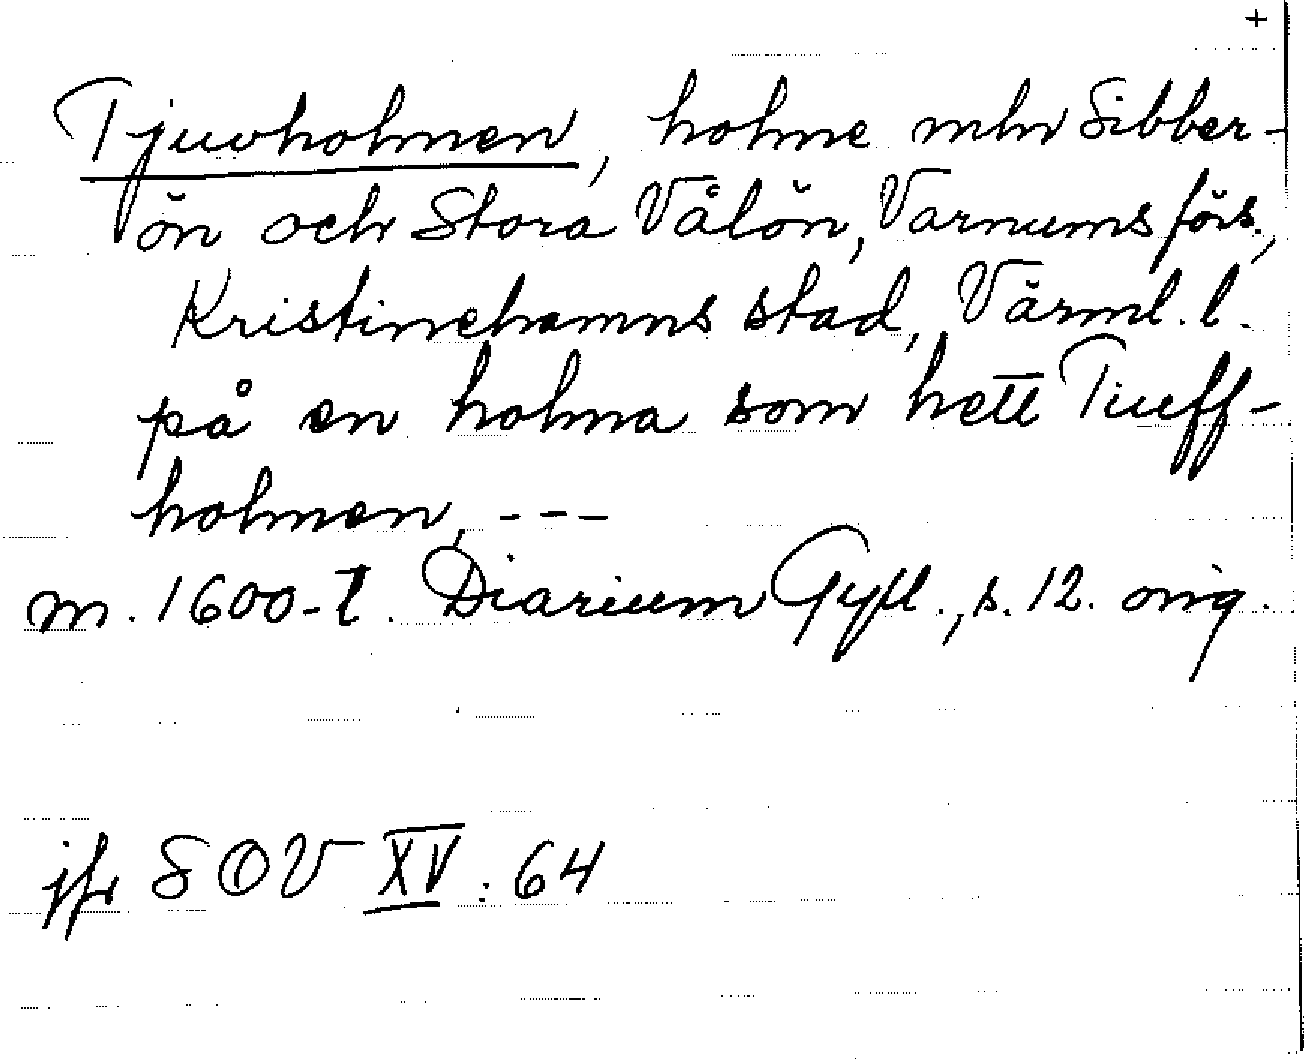 +
Tjuvholmen, holme mln Sibber-
ön och Stora Vålön, Varnums förs.,
Kristinehamns stad, Värml. l.
på en holma som hett Tiuff-
holmen, ---
m. 1600-t. Diarium Gyll., s. 12. orig.
jfr SOV XV: 64